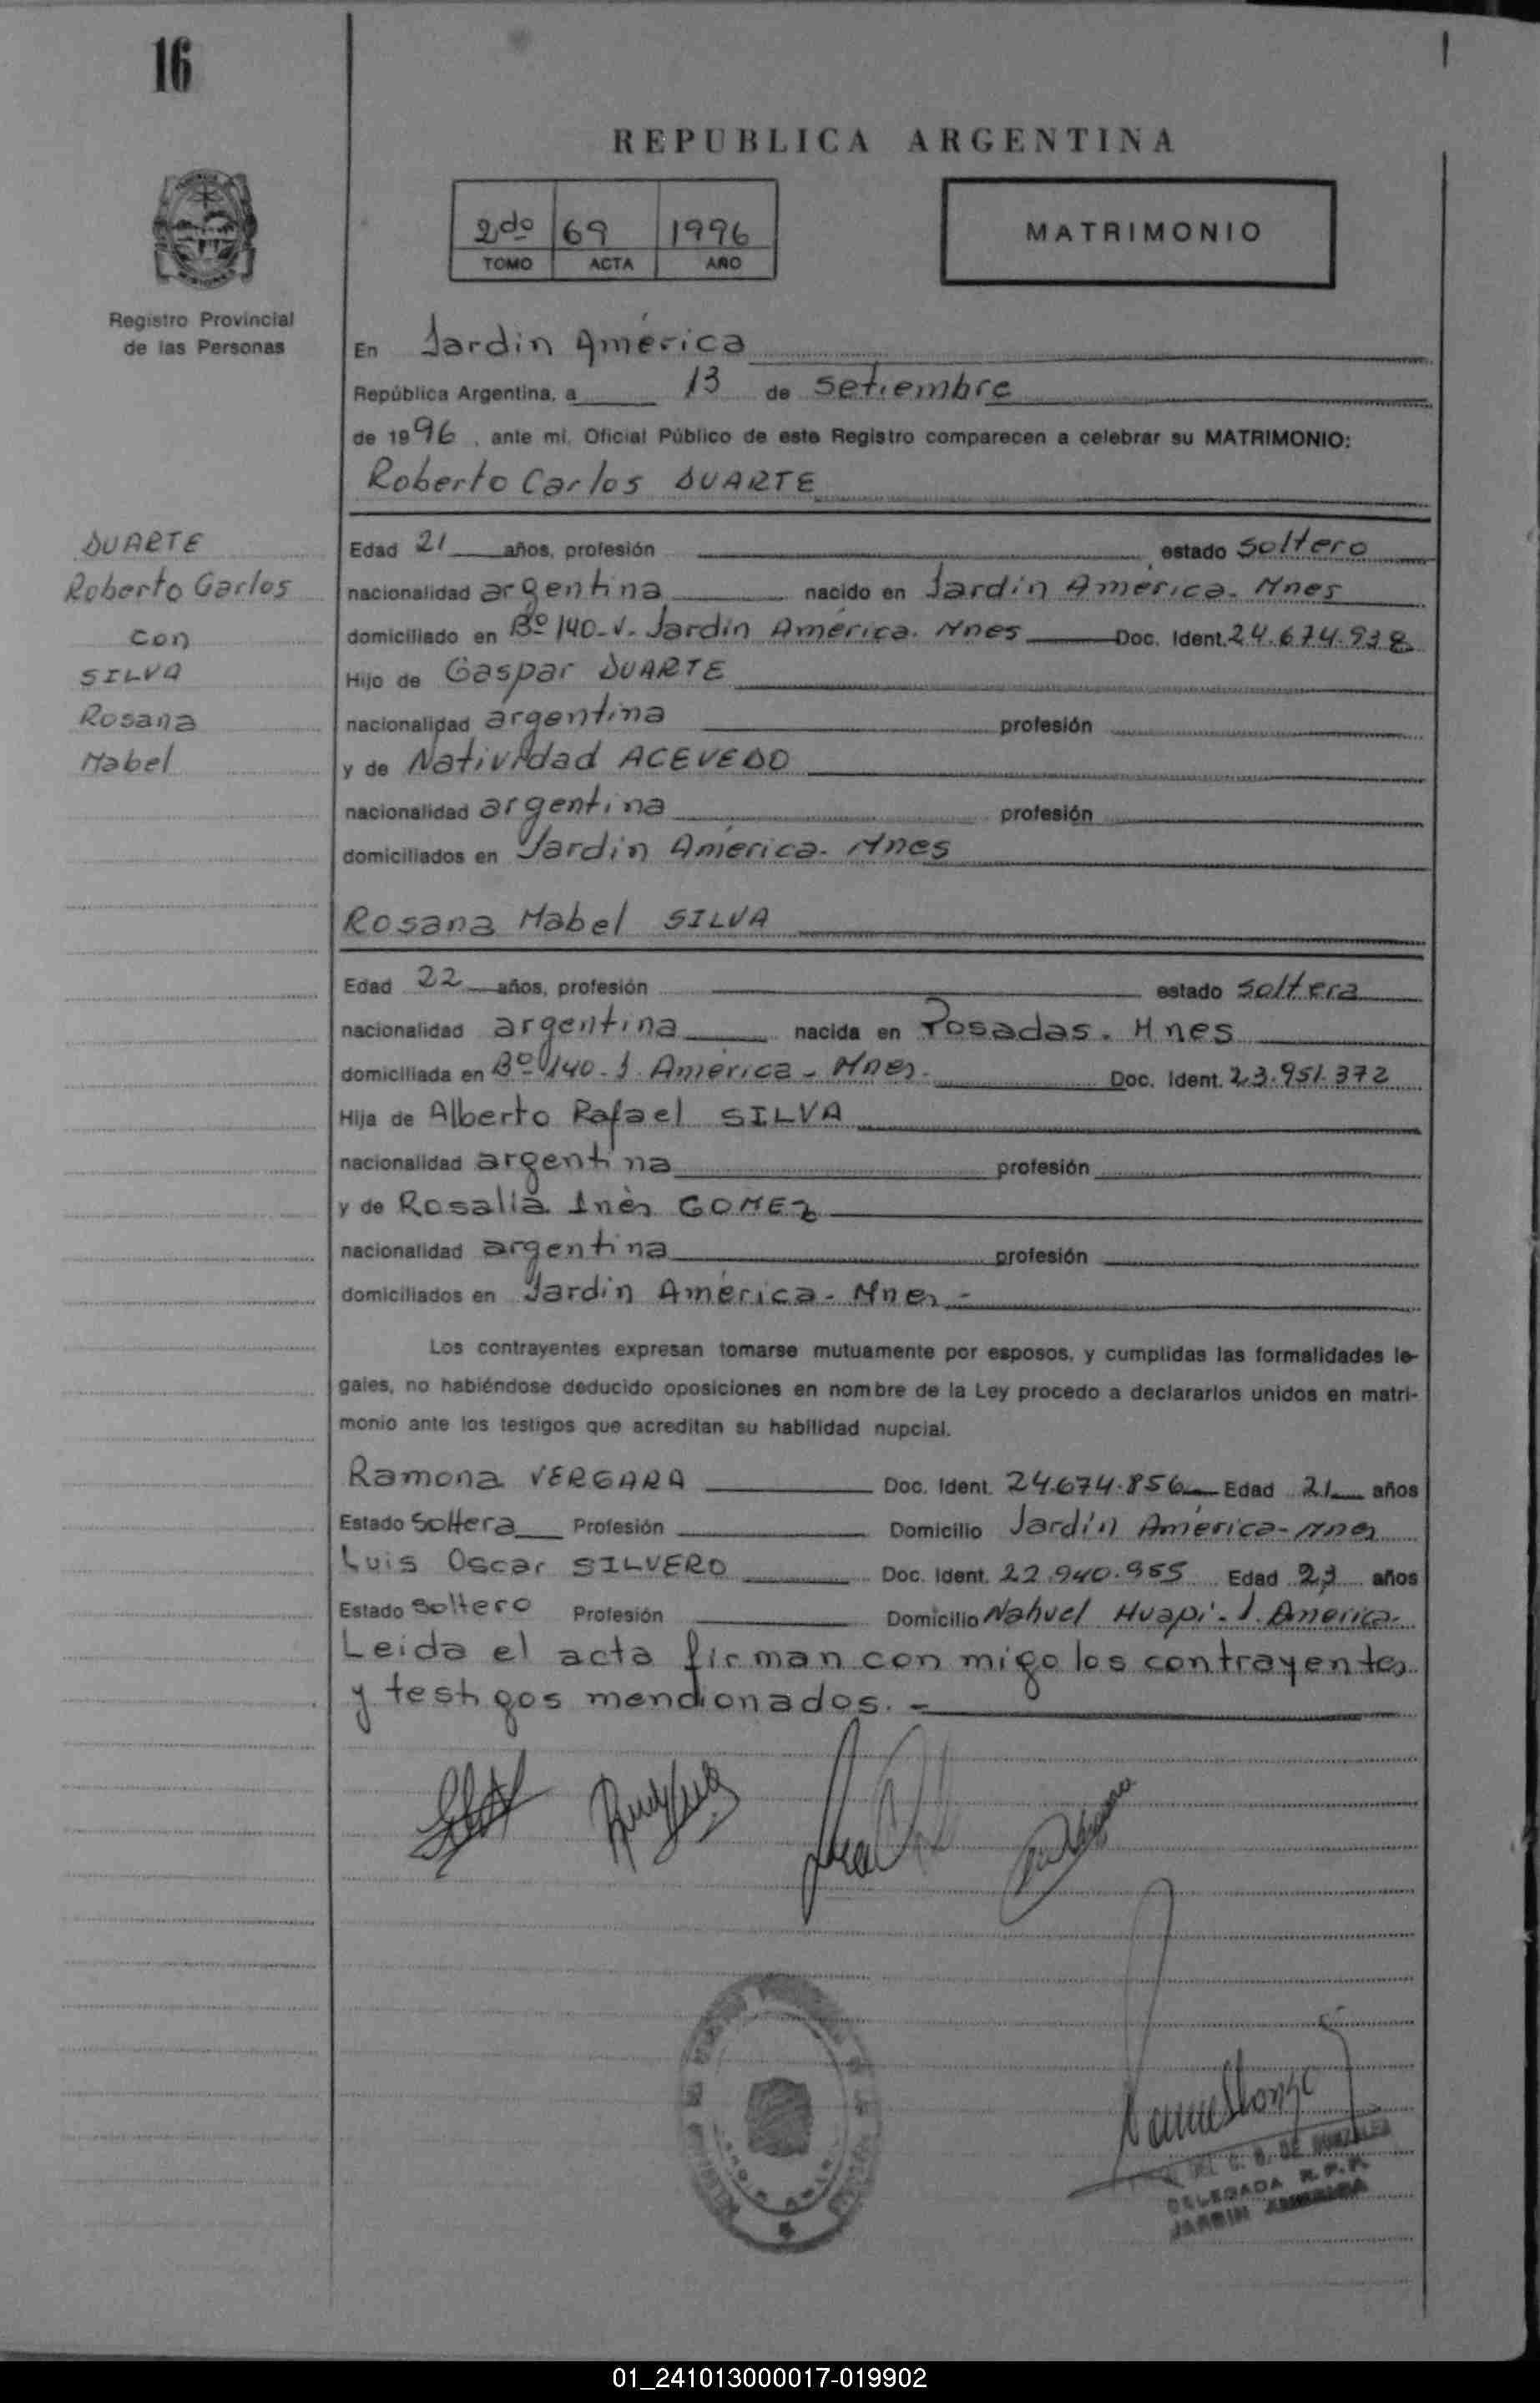 16
REPUBLICA ARGENTINA
2do 69 1996
TOMO ACTA AÑO
MATRIMONIO
Registro Provincial
de las Personas
En Jardin América
República Argentina, a 13 de setiembre
de 1996, ante mi, Oficial Público de este Registro comparecen a celebrar su MATRIMONIO:
Roberto Carlos DUARTE
DUARTE
Roberto Carlos
con
SILVA
Rosana
Mabel
Edad 21 años, profesión estado soltero
nacionalidad argentina nacido en Jardín América. Mnes
domiciliado en Bº 140-V. Jardín América. Mnes Doc. Ident. 24.674.938
Hijo de Gaspar DUARTE
nacionalidad argentina profesión
y de Natividad ACEVEDO
nacionalidad argentina profesión
domiciliados en Jardin América. Mnes
Rosana Mabel SILVA
Edad 22 años, profesión estado soltera
nacionalidad argentina nacida en Posadas. Mnes
domiciliada en Bº 140-J. América - Mnes. Doc. Ident. 23.951.372
Hija de Alberto Rafael SILVA
nacionalidad argentina profesión
y de Rosalía Inès GOMEZ
nacionalidad argentina profesión
domiciliados en Jardin América - Mnes -
Los contrayentes expresan tomarse mutuamente por esposos, y cumplidas las formalidades le-
gales, no habiéndose deducido oposiciones en nombre de la Ley procedo a declararlos unidos en matri-
monio ante los testigos que acreditan su habilidad nupcial.
Ramona VERGARA Doc. Ident. 24.674.856 Edad 21 años
Estado soltera Profesión Domicilio Jardín América-Mnes
Luis Oscar SILVERO Doc. Ident. 22.940.955 Edad 23 años
Estado soltero Profesión Domicilio Nahuel Huapi - J. América.
Leida el acta firman con migo los contrayentes
y testigos mencionados. -
DE GONZALEZ
DELEGADA R.P.P.
JARDIN AMERICA
01_241013000017-019902